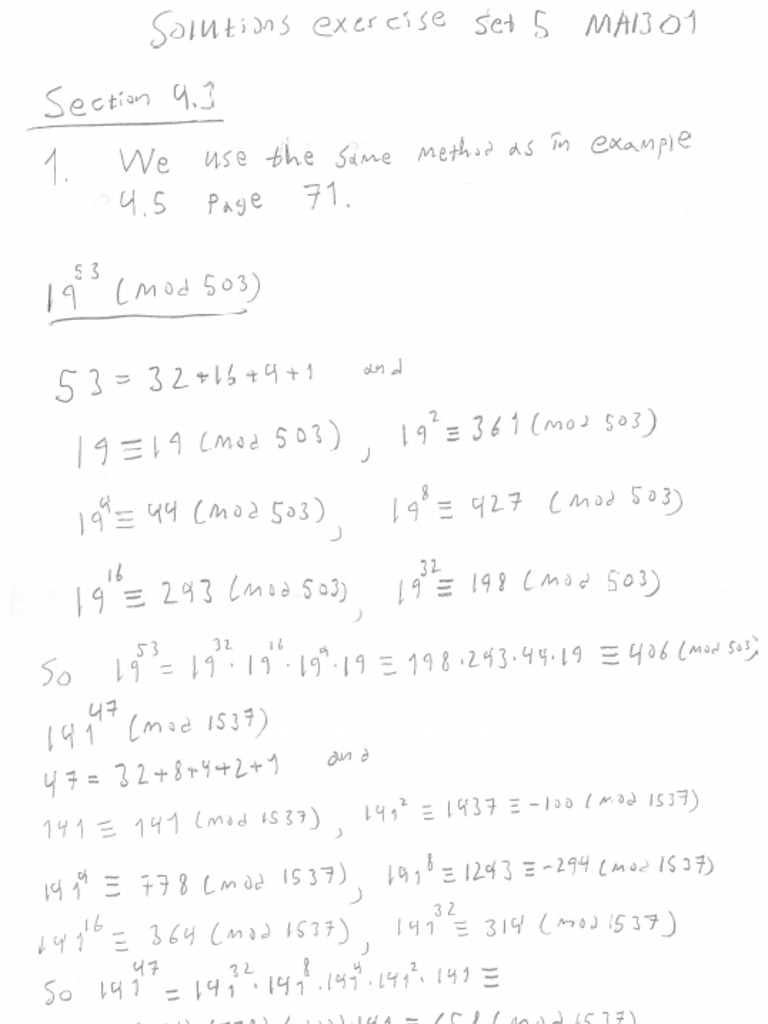 Solutions exercise set 5 MA1301
Section 4.3
1. We use the same method as in example
4.5 page 71.
19^53 (mod 503)
53 = 32+16+4+1 and
19 ≡ 19 (mod 503), 19^2 ≡ 361 (mod 503)
19^4 ≡ 44 (mod 503), 19^8 ≡ 427 (mod 503)
19^16 ≡ 243 (mod 503), 19^32 ≡ 198 (mod 503)
So 19^53 = 19^32 · 19^16 · 19^4 · 19 ≡ 198·243·44·19 ≡ 406 (mod 503)
141^47 (mod 1537)
47 = 32+8+4+2+1 and
141 ≡ 141 (mod 1537), 141^2 ≡ 1437 ≡ -100 (mod 1537)
141^4 ≡ 778 (mod 1537), 141^8 ≡ 1243 ≡ -294 (mod 1537)
141^16 ≡ 364 (mod 1537), 141^32 ≡ 314 (mod 1537)
So 141^47 = 141^32 · 141^8 · 141^4 · 141^2 · 141 ≡
(mod 1537)